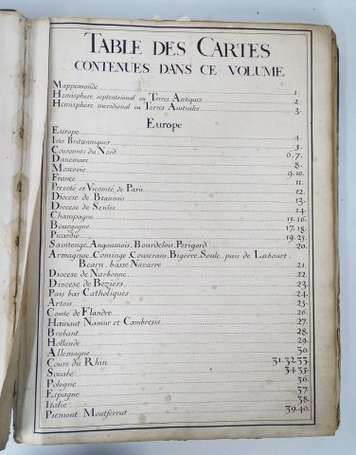 TABLE DES CARTES
CONTENUES DANS CE VOLUME
Mappemonde 1.
Hemisphere septentrional ou Terres Arctiques 2.
Hemisphere meridional ou Terres Australes 3.
Europe
Europe 4.
Isles Britanniques 5.
Couronnes du Nord 6. 7.
Danemarc 8.
Moscovie 9. 10.
France 11.
Prevoté et Vicomté de Paris 12.
Diocese de Beauvais 13.
Diocese de Senlis 14.
Champagne 15. 16.
Bourgogne 17. 18.
Picardie 19. 25.
Saintonge, Angoumois, Bourdelois, Perigord 20.
Armagnac, Cominge, Couserans, Bigorre, Soule, pais de Labourt,
Bearn, basse Navarre 21.
Diocese de Narbonne 22.
Diocese de Beziers 23.
Pais bas Catholiques 24.
Artois 25.
Comté de Flandre 26.
Hainaut Namur et Cambresis 27.
Brabant 28.
Hollande 29.
Allemagne 30.
Cours du Rhin 31. 32. 33.
Souabe 34. 35.
Pologne 36.
Espagne 37.
Italie 38.
Piemont Montferrat 39. 40.